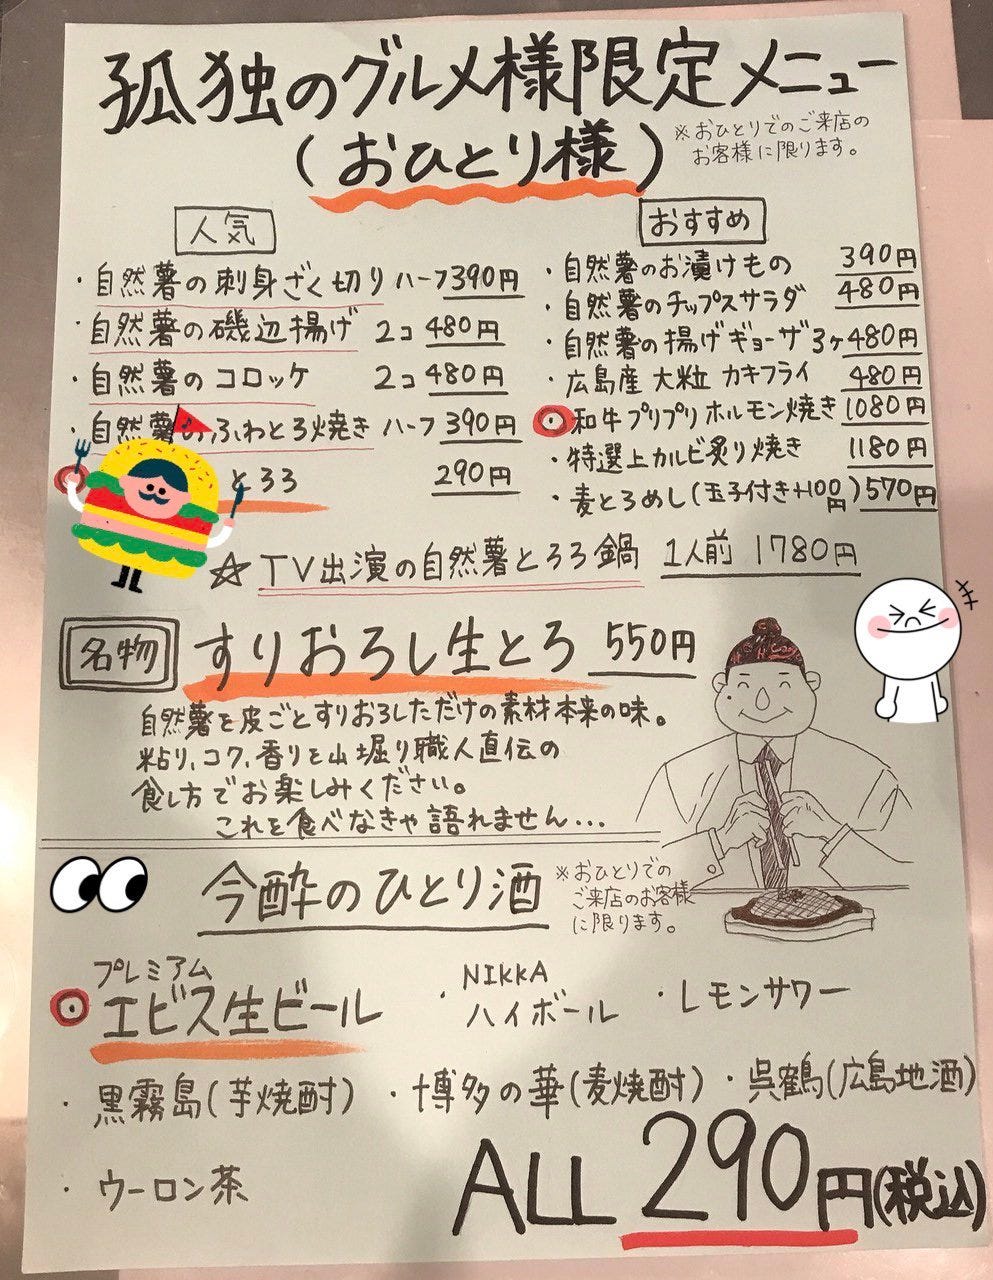 孤独のグルメ様限定メニュー
(おひとり様)
※おひとりでのご来店の
お客様に限ります。
人気
・自然薯の刺身ざく切り ハーフ 390円
・自然薯の磯辺揚げ 2コ 480円
・自然薯のコロッケ 2コ 480円
・自然薯のふわとろ焼き ハーフ 390円
とろろ 290円
おすすめ
・自然薯のお漬けもの 390円
・自然薯のチップスサラダ 480円
・自然薯の揚げギョーザ 3ヶ 480円
・広島産 大粒 カキフライ 480円
和牛プリプリホルモン焼き 1080円
・特選上カルビ炙り焼き 1180円
・麦とろめし(玉子付き+100円) 570円
☆TV出演の自然薯とろろ鍋 1人前 1780円
名物 すりおろし生とろ 550円
自然薯を皮ごとすりおろしただけの素材本来の味。
粘り、コク、香りを山堀り職人直伝の
食し方でお楽しみください。
これを食べなきゃ語れません...
今酔のひとり酒
※おひとりでの
ご来店のお客様
に限ります。
プレミアム
エビス生ビール
NIKKA
・ハイボール
・レモンサワー
・黒霧島(芋焼酎) ・博多の華(麦焼酎) ・呉鶴(広島地酒)
・ウーロン茶
ALL 290円(税込)